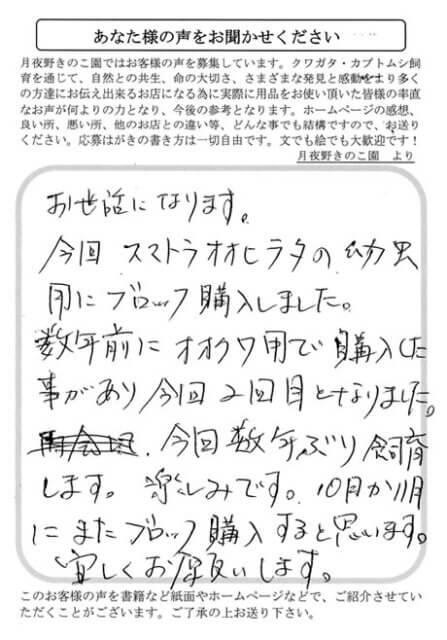 あなた様の声をお聞かせください
月夜野きのこ園ではお客様の声を募集しています。クワガタ・カブトムシ飼
育を通じて、自然との共生、命の大切さ、さまざまな発見と感動をより多く
の方達にお伝え出来るお店になる為に実際に用品をお使い頂いた皆様の率直
なお声が何よりの力となり、今後の参考となります。ホームページの感想、
良い所、悪い所、他のお店との違い等、どんな事でも結構ですので、お送り
ください。応募はがきの書き方は一切自由です。文でも絵でも大歓迎です！
月夜野きのこ園　より
お世話になります。
今回 スマトラオオヒラタの幼虫
用にブロック購入しました。
数年前にオオクワ用で購入した
事があり今回2回目となりました。
今回数年ぶり飼育
します。楽しみです。10月か11月
にまたブロック購入すると思います。
宜しくお願いします。
このお客様の声を書籍など紙面やホームページなどで、ご紹介させてい
ただくことがございます。ご了承の上お送り下さい。